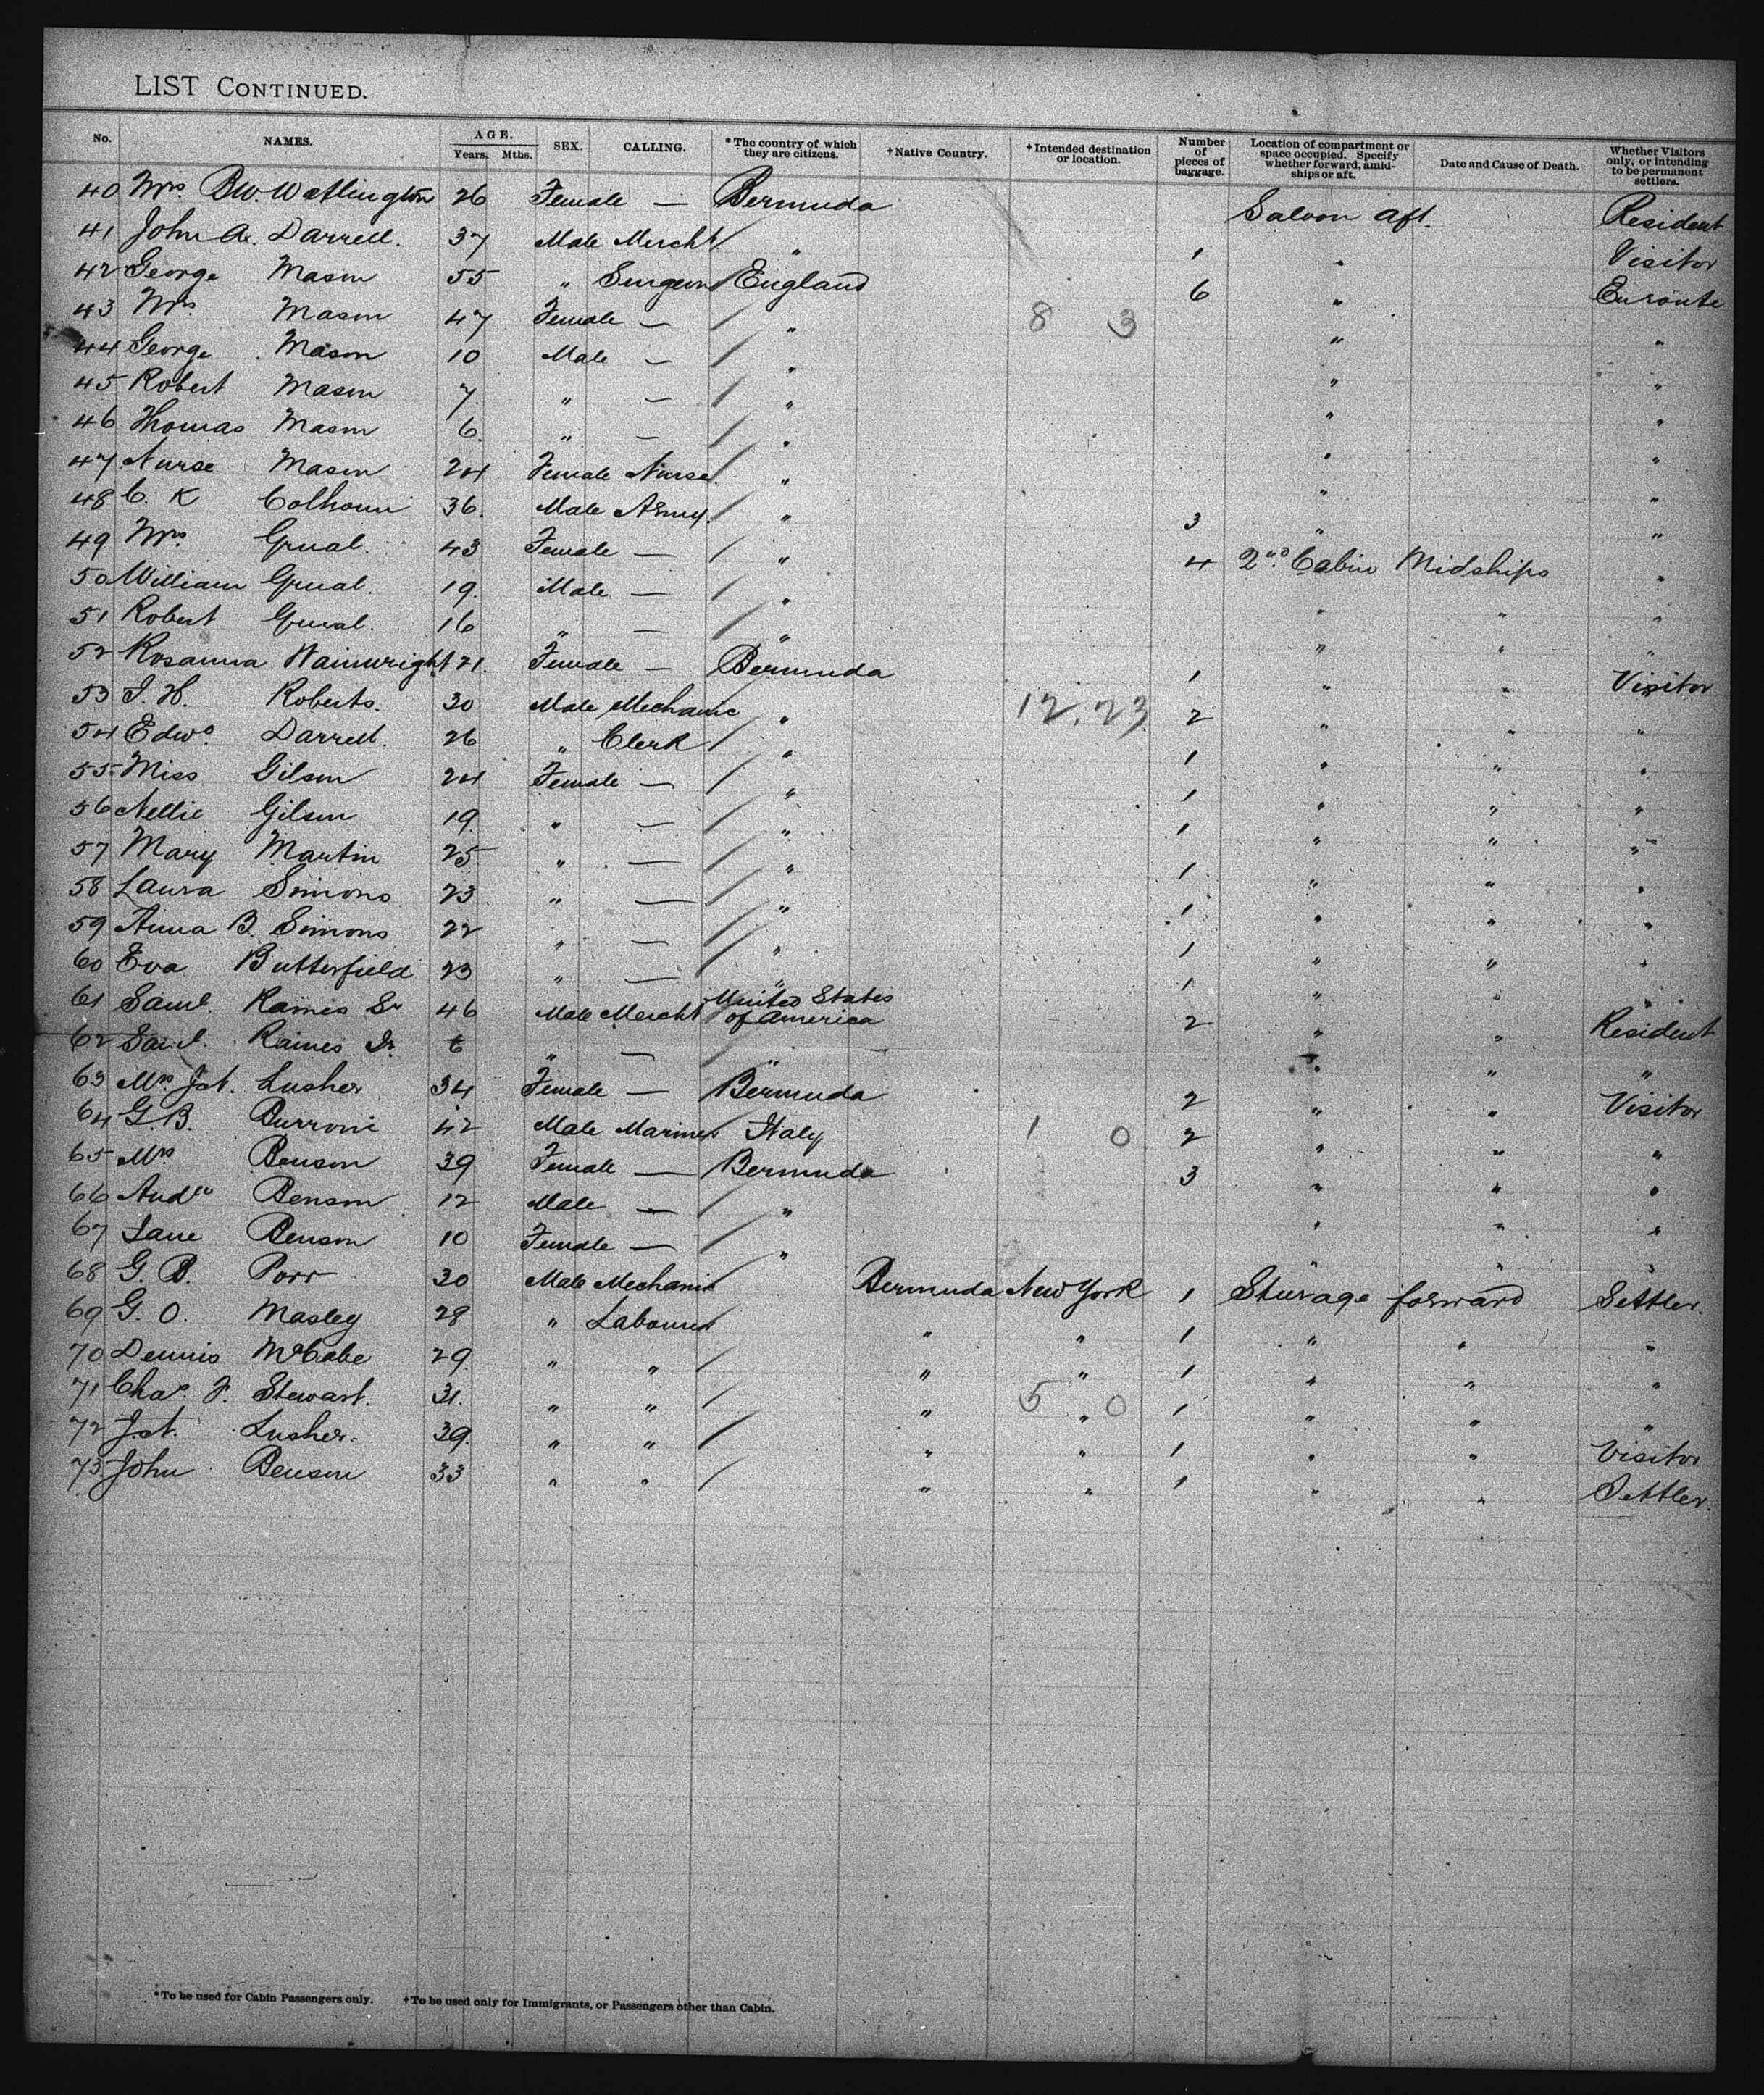 LIST CONTINUED.
No. NAMES. AGE. Years. Mths. SEX. CALLING. *The country of which they are citizens. †Native Country. †Intended destination or location. Number of pieces of baggage. Location of compartment or space occupied. Specify whether forward, amidships or aft. Date and Cause of Death. Whether Visitors only, or intending to be permanent settlers.
40 Mrs. BW. Watlington 26 Female — Bermuda Saloon aft. Resident
41 John A. Darrell. 37 Male Mercht / " 1 " Visitor
42 George Mason 55 " Surgeon / England 6 " Enroute
43 Mrs. Mason 47 Female — / " 8 3 " "
44 George Mason 10 Male — / " " "
45 Robert Mason 7. " — / " " "
46 Thomas Mason 6. " — / " " "
47 Nurse Mason 24 Female Nurse / " " "
48 C. K Colhoun 36. Male Army. / " 3 " "
49 Mrs. Grual. 43 Female — / " 4 2nd. Cabin Midships "
50 William Grual. 19. Male — / " " " "
51 Robert Grual. 16 " — / " " " "
52 Rosanna Wainwright 21. Female — Bermuda 1 " " Visitor
53 J. H. Roberts. 30 Male Mechanic " 12.23 2 " " "
54 Edwd. Darrell. 26 " Clerk / " 1 " " "
55 Miss Gilson 24 Female — / " 1 " " "
56 Nellie Gilson 19. " — / " 1 " " "
57 Mary Martin 25 " — / " 1 " " "
58 Laura Simons 23 " — / " 1 " " "
59 Anna B. Simons 22 " — / " 1 " " "
60 Eva Butterfield 23 " — / " 1 " " "
61 Saml. Raines Sr 46 Male Mercht / United States of America 2 " " Resident
62 Saml. Raines Jr. 6 " — / " " " "
63 Mrs. Jst. Lusher 34 Female — / Bermuda 2 " " Visitor
64 G.B. 42 Male Mariner Italy 1 0 2 " " "
65 Mrs Benson 39 Female — / Bermuda 3 " " "
66 Andw Benson 12 Male — / " " " "
67 Jane Benson 10 Female — / " " " "
68 G. B. Porr 30 Male Mechanic Bermuda New York 1 Sturage forward Settler.
69 G. O. Masley 28 " Labourer " " 1 " " "
70 Dennis McCabe 29. " " / " " 1 " " "
71 Chas. J. Stewart. 31. " " / " 5 " 0 1 " " "
72 Jst. Lusher. 39. " " / " " 1 " " Visitor
73. John Benson 33 " " / " " 1 " " Settler.
*To be used for Cabin Passengers only. †To be used only for Immigrants, or Passengers other than Cabin.